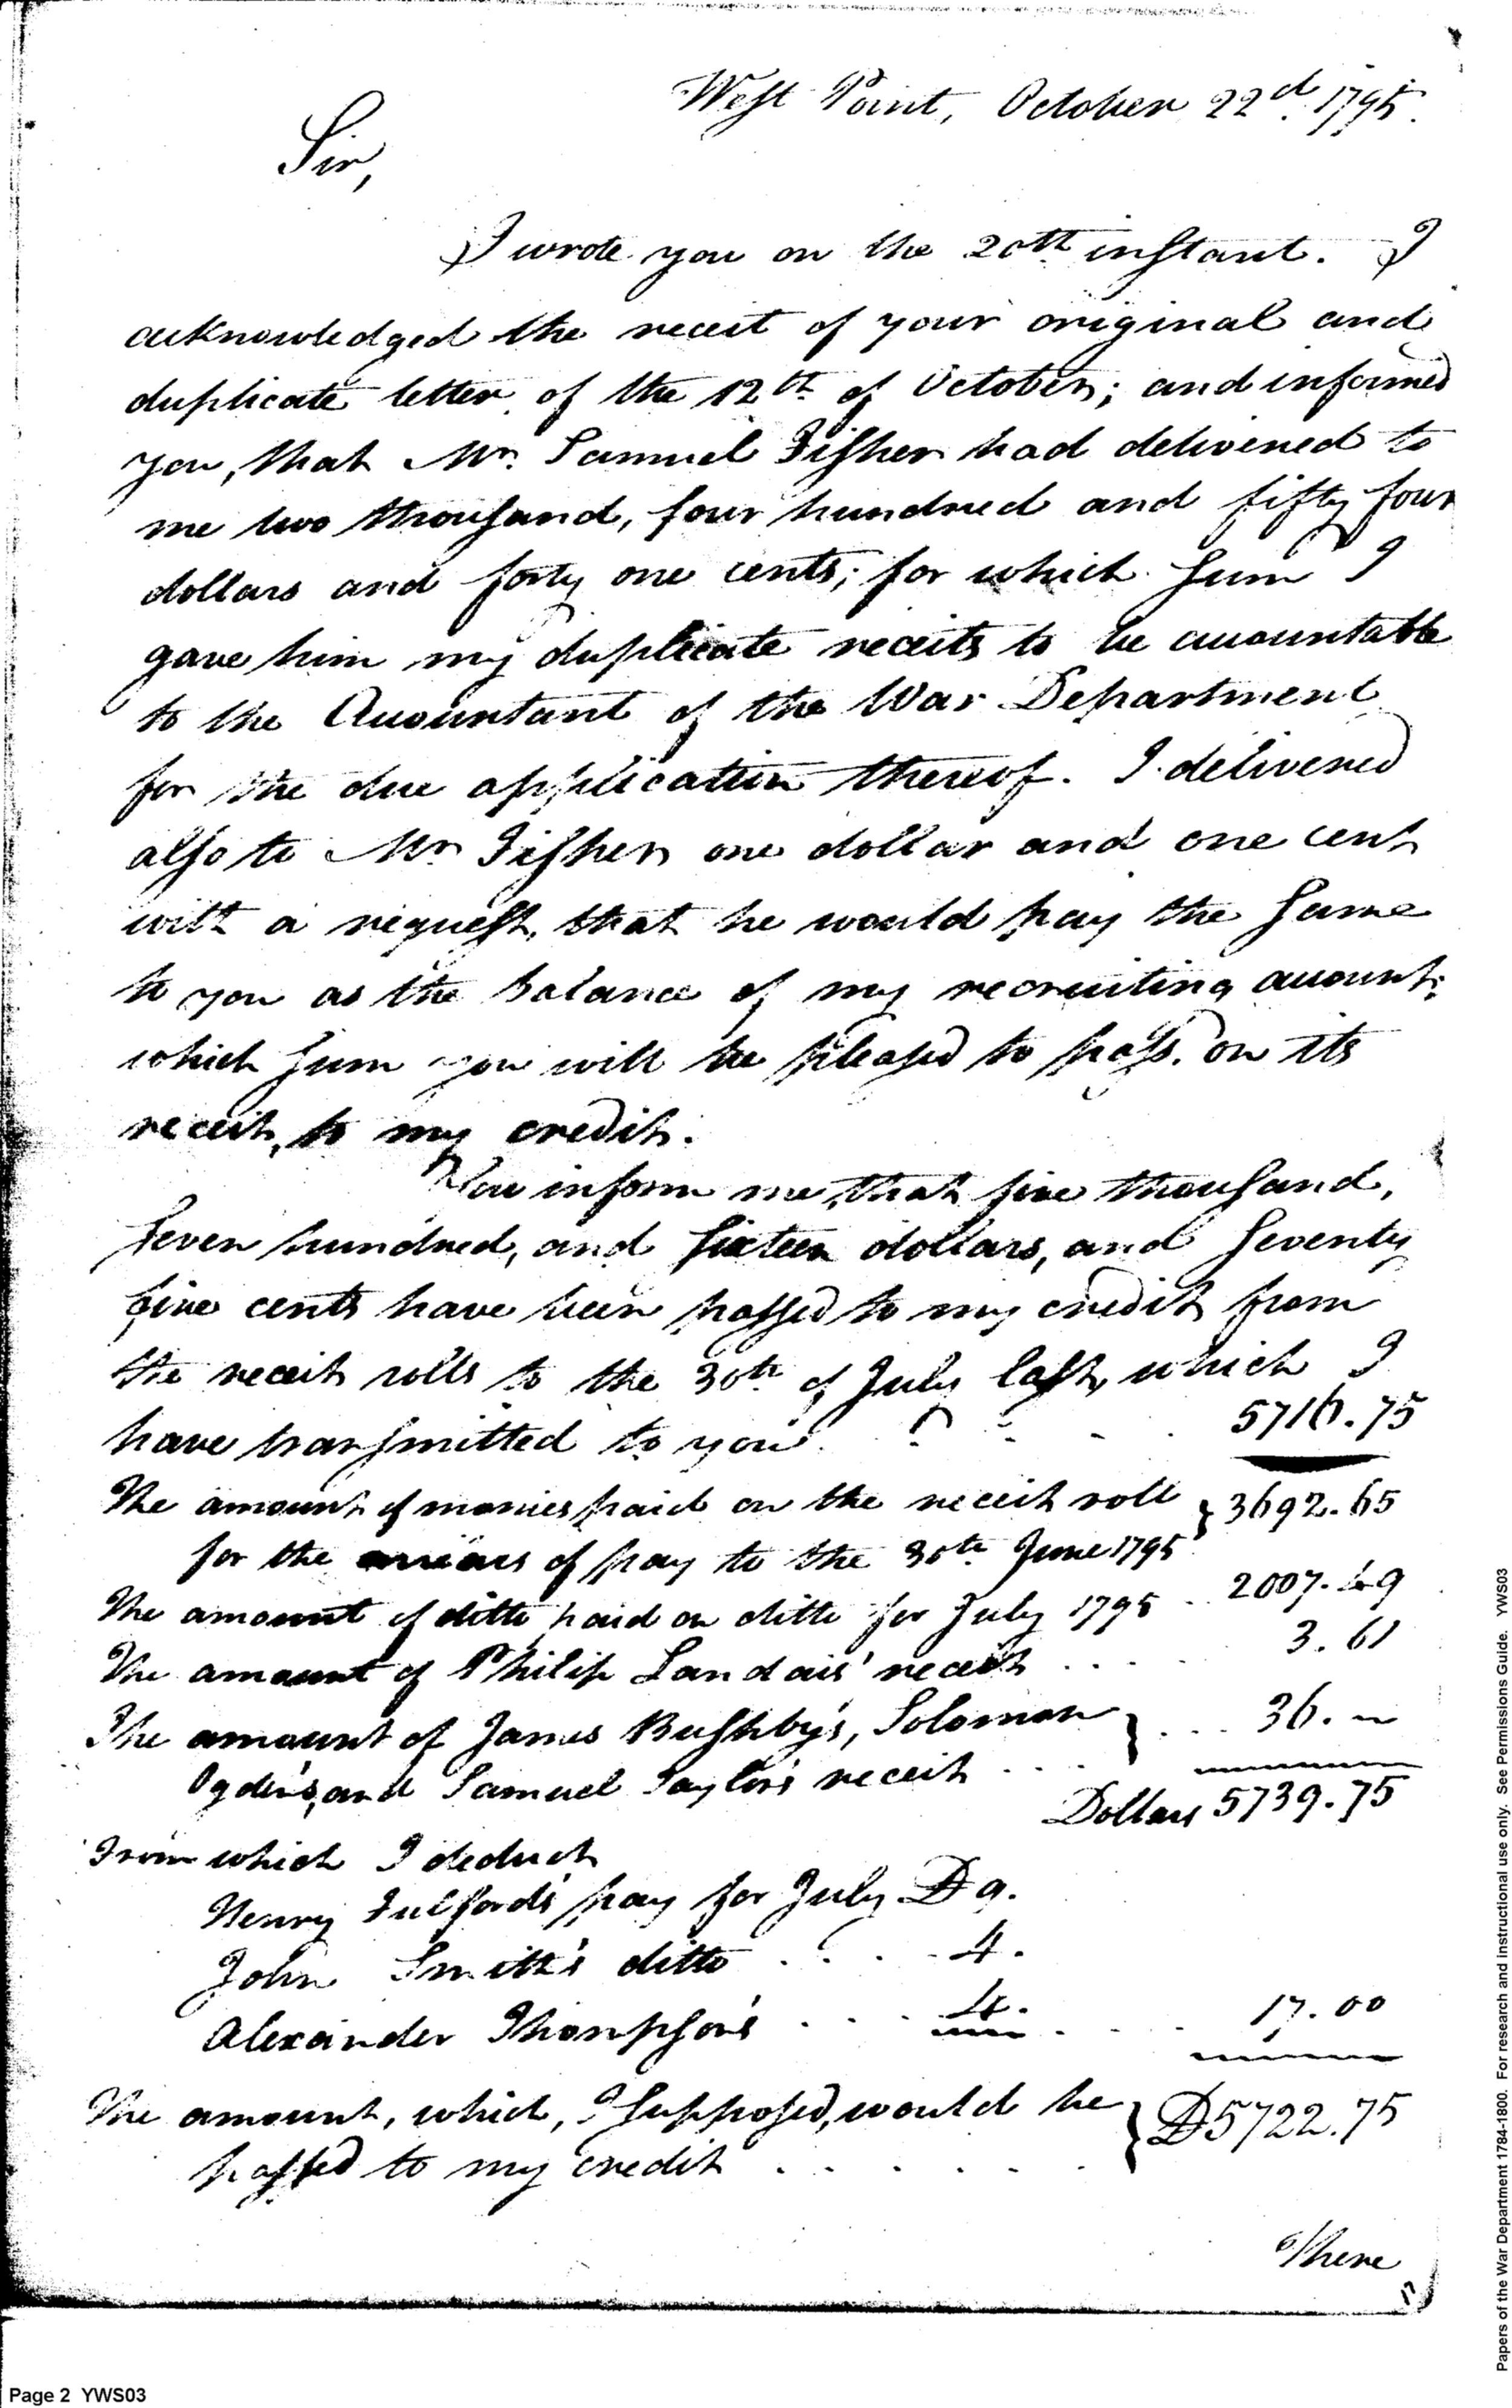 West Point, October 22d. 1795.
Sir,
I wrote you on the 20th instant. I
acknowledged the receit of your original and
duplicate letter of the 12th of October; and informed
you, that Mr. Samuel Fisher had delivered to
me two thousand, four hundred and fifty four
dollars and forty one cents; for which sum I
gave him my duplicate receits to be accountable
to the Accountant of the War Department
for the due application thereof. I delivered
also to Mr Fisher one dollar and one cent
with a request, that he would pay the same
to you as the balance of my recruiting account;
which sum you will be pleased to pass, on its
receit, to my credit.
You inform me, that five thousand,
seven hundred, and sixteen dollars, and seventy
five cents have been passed to my credit from
the receit rolls to the 30th of July last, which I
have transmitted to you. . . . . 5716.75
The amount of monies paid on the receit roll } 3692.65
for the arrears of pay to the 30th June 1795
The amount of ditto paid on ditto for July 1795 . . 2007.49
The amount of Philip Landais' receit . . . . . 3.61
The amount of James Bushby's, Solomon } . . . 36. ~
Ogden's, and Samuel Taylor's receit . . .
Dollars 5739.75
From which I deduct
Henry Fulford's pay for July D 9.
John Smith's ditto . . . . 4.
Alexander Thompson's . . . . 4. . . . 17.00
The amount, which, I supposed, would be } D5722.75
passed to my credit . . . . . .
There
17
Page 2 YWS03
Papers of the War Department 1784-1800. For research and instructional use only. See Permissions Guide. YWS03